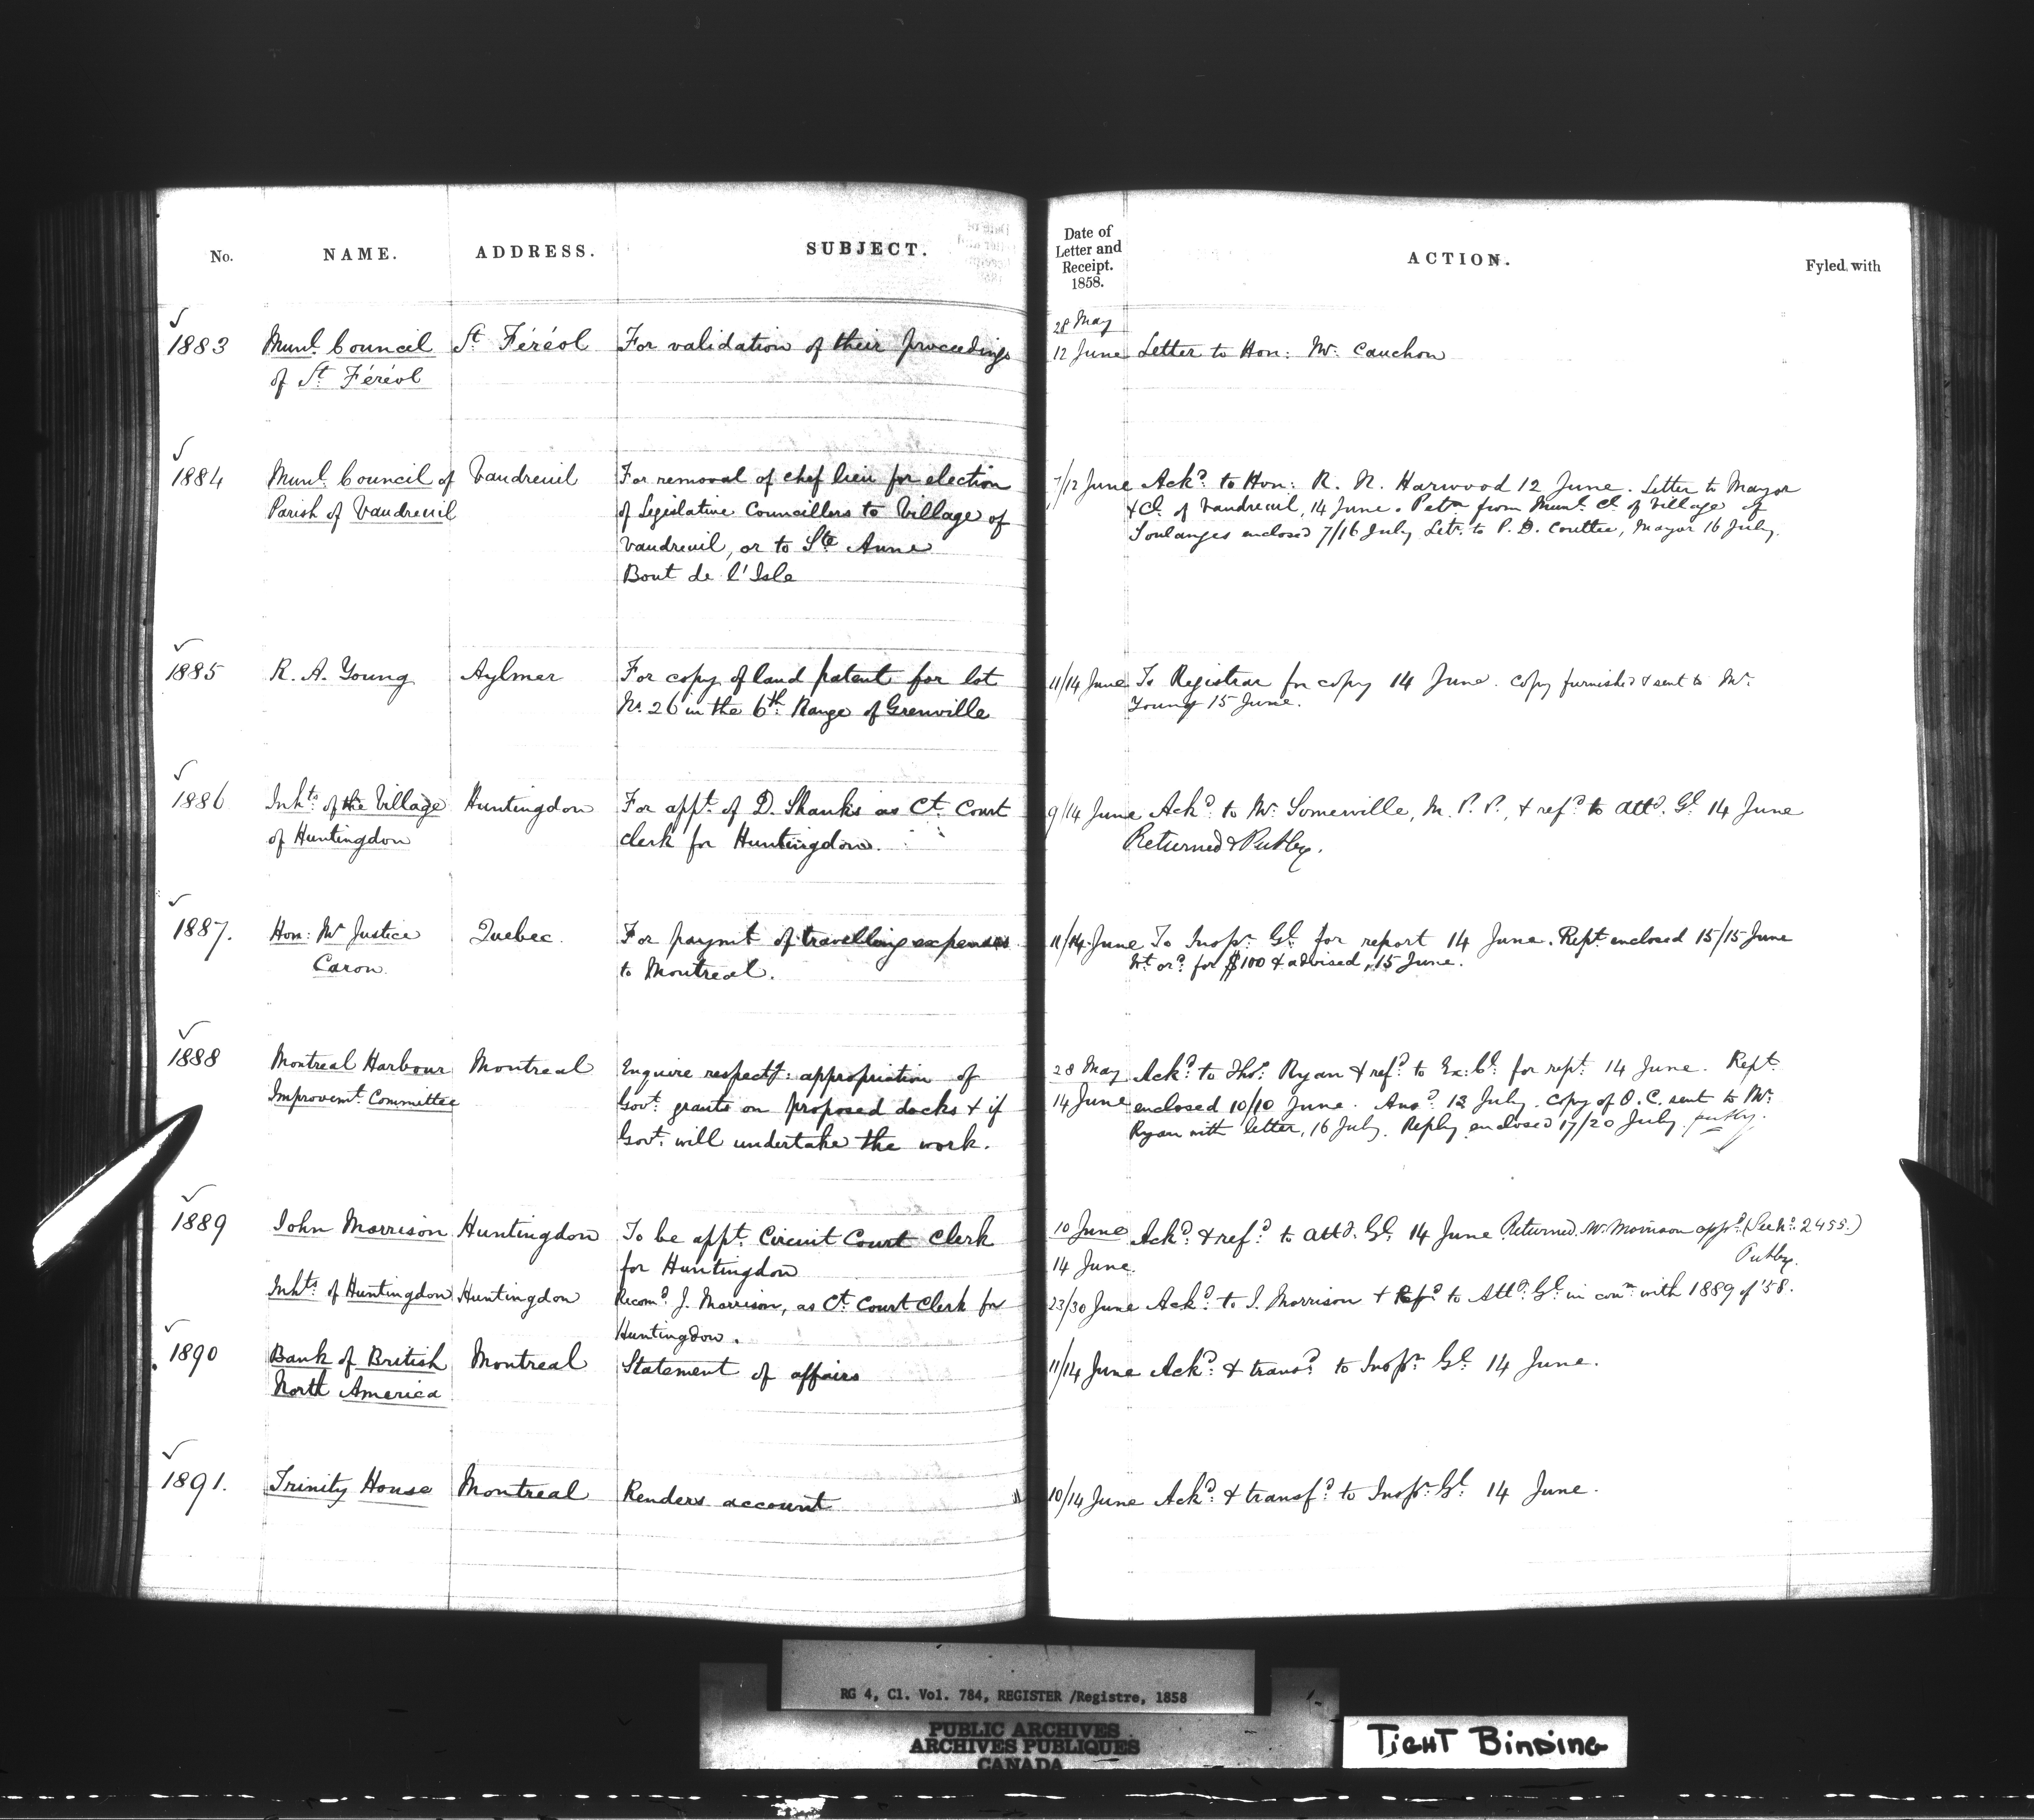 No. NAME. ADDRESS. SUBJECT. Date of Letter and Receipt. 1858. ACTION. Fyled with
1883 Munl. Council St Féréol For validation of their proceedings 28 May
of St Féréol 12 June Letter to Hon: Mr. Cauchon
1884 Munl. Council of Vaudreuil For removal of chef lieu for election 7/12 June Ackd. to Hon: R. N. Harwood 12 June. Letter to Mayor
Parish of Vaudreuil of Legislative Councillors to Village of & Cl. of Vaudreuil, 14 June. Petn. from Munl. Cl. of Village of
Vaudreuil, or to Ste Anne Soulanges enclosed 7/16 July Letr. to P. D. Couttee, Mayor 16 July.
Bout de l'Isle
1885 R. A. Young Aylmer For copy of land patent for lot 11/14 June To Registrar for copy 14 June. Copy furnished & sent to Mr.
No. 26 in the 6th. Range of Grenville Young 15 June.
1886 Inhts. of the Village Huntingdon For appt. of D. Shanks as Ct. Court 9/14 June Ackd. to Mr. Somerville, M. P. P., & refd. to Atty. Gl. 14 June
of Huntingdon Clerk for Huntingdon. Returned & Putby.
1887. Hon: Mr Justice Quebec. For paymt of travelling expenses 11/14 June To Inspr. Gl. for report 14 June. Rept. enclosed 15/15 June
Caron to Montreal. Wt. ord. for $100 & advised, 15 June.
1888 Montreal Harbour Montreal Enquire respectg: appropriation of 28 May Ackd. to Thos: Ryan & refd. to Ex: Cl. for rept. 14 June. Rept.
Improvemt. Committee Govt. grants on proposed docks & if 14 June enclosed 10/10 June. Ansd. 12 July. Copy of O. C. sent to Mr.
Govt. will undertake the work. Ryan with letter, 16 July. Reply enclosed 17/20 July. putby.
1889 John Morrison Huntingdon To be appt. Circuit Court Clerk 10 June Ackd. & refd. to Atty. Gl. 14 June Returned. Mr. Morrison appd. (See No. 2455.)
for Huntingdon 14 June. Putby.
Inhts. of Huntingdon Huntingdon Recomd. J. Morrison, as Ct. Court Clerk for 23/30 June Ackd. to J. Morrison & Refd. to Atty. Gl. in conn. with 1889 of '58.
Huntingdon.
1890 Bank of British Montreal Statement of affairs 11/14 June Ackd. & transd. to Inspr. Gl. 14 June.
North America
1891. Trinity House Montreal Renders account 10/14 June Ackd. & transfd. to Inspr. Gl. 14 June.
RG 4, Cl. Vol. 784, REGISTER /Registre, 1858
PUBLIC ARCHIVES
ARCHIVES PUBLIQUES
CANADA
TIGHT BINDING